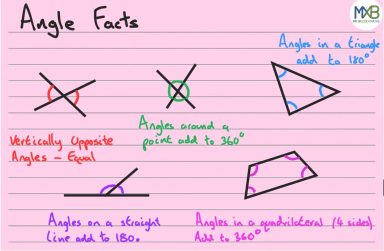 Angle Facts
MXB
Angles in a triangle
add to 180°
Angles around a
point add to 360°
Vertically Opposite
Angles - Equal
Angles on a straight
line add to 180°
Angles in a quadrilateral (4 sides)
Add to 360°